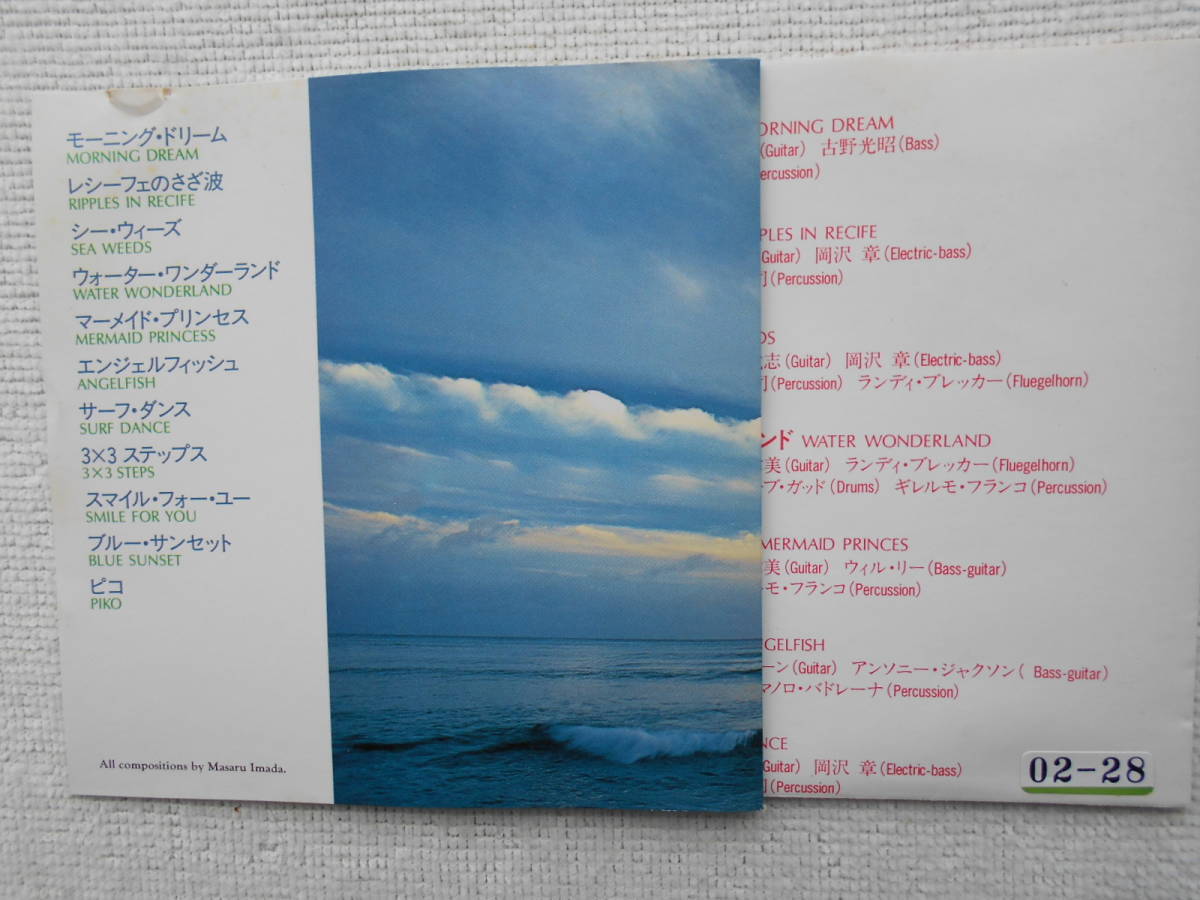 モーニング・ドリーム
MORNING DREAM
レシーフェのさざ波
RIPPLES IN RECIFE
シー・ウィーズ
SEA WEEDS
ウォーター・ワンダーランド
WATER WONDERLAND
マーメイド・プリンセス
MERMAID PRINCESS
エンジェルフィッシュ
ANGELFISH
サーフ・ダンス
SURF DANCE
3×3 ステップス
3×3 STEPS
スマイル・フォー・ユー
SMILE FOR YOU
ブルー・サンセット
BLUE SUNSET
ピコ
PIKO
All compositions by Masaru Imada.
ORNING DREAM
(Guitar) 古野光昭(Bass)
ercussion)
PLES IN RECIFE
Guitar) 岡沢 章(Electric-bass)
(Percussion)
DS
志(Guitar) 岡沢 章(Electric-bass)
(Percussion) ランディ・ブレッカー(Fluegelhorn)
ンド WATER WONDERLAND
美(Guitar) ランディ・ブレッカー(Fluegelhorn)
ーブ・ガッド(Drums) ギレルモ・フランコ(Percussion)
MERMAID PRINCES
美(Guitar) ウィル・リー(Bass-guitar)
モ・フランコ(Percussion)
GELFISH
ーン(Guitar) アンソニー・ジャクソン( Bass-guitar)
マノロ・バドレーナ(Percussion)
NCE
Guitar) 岡沢 章(Electric-bass)
(Percussion)
02-28